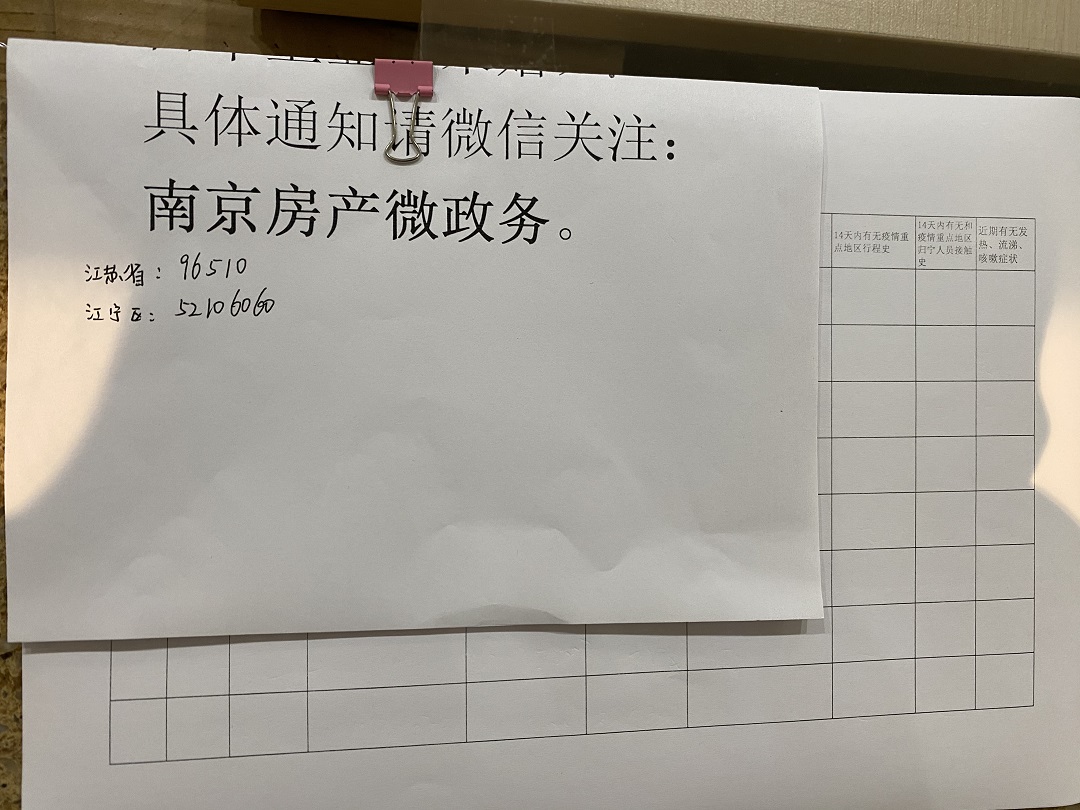 具体通知请微信关注：
南京房产微政务。
江苏省：96510
江宁区：52106060
14天内有无疫情重
点地区行程史
14天内有无和
疫情重点地区
归宁人员接触
史
近期有无发
热、流涕、
咳嗽症状